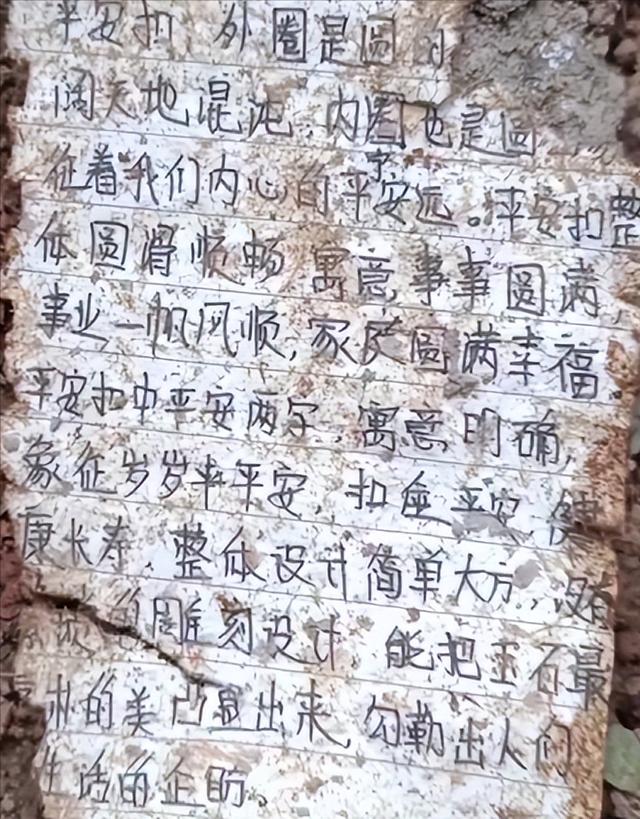 平安扣 外圈是圆
阔天地混沌,内圈也是回
征着我们内心的平安远。平安扣整
宁
体圆滑顺畅 寓意事事圆满,
事业一帆风顺,家庭圆满幸福.
平安扣中平安两字,寓意明确,
象征岁岁年平安,扣 平安 健
康长寿,整体设计简单大方,没有
雕刻设计,能把玉石最
的美凸显出来,勾勒出人们
生活的企盼。